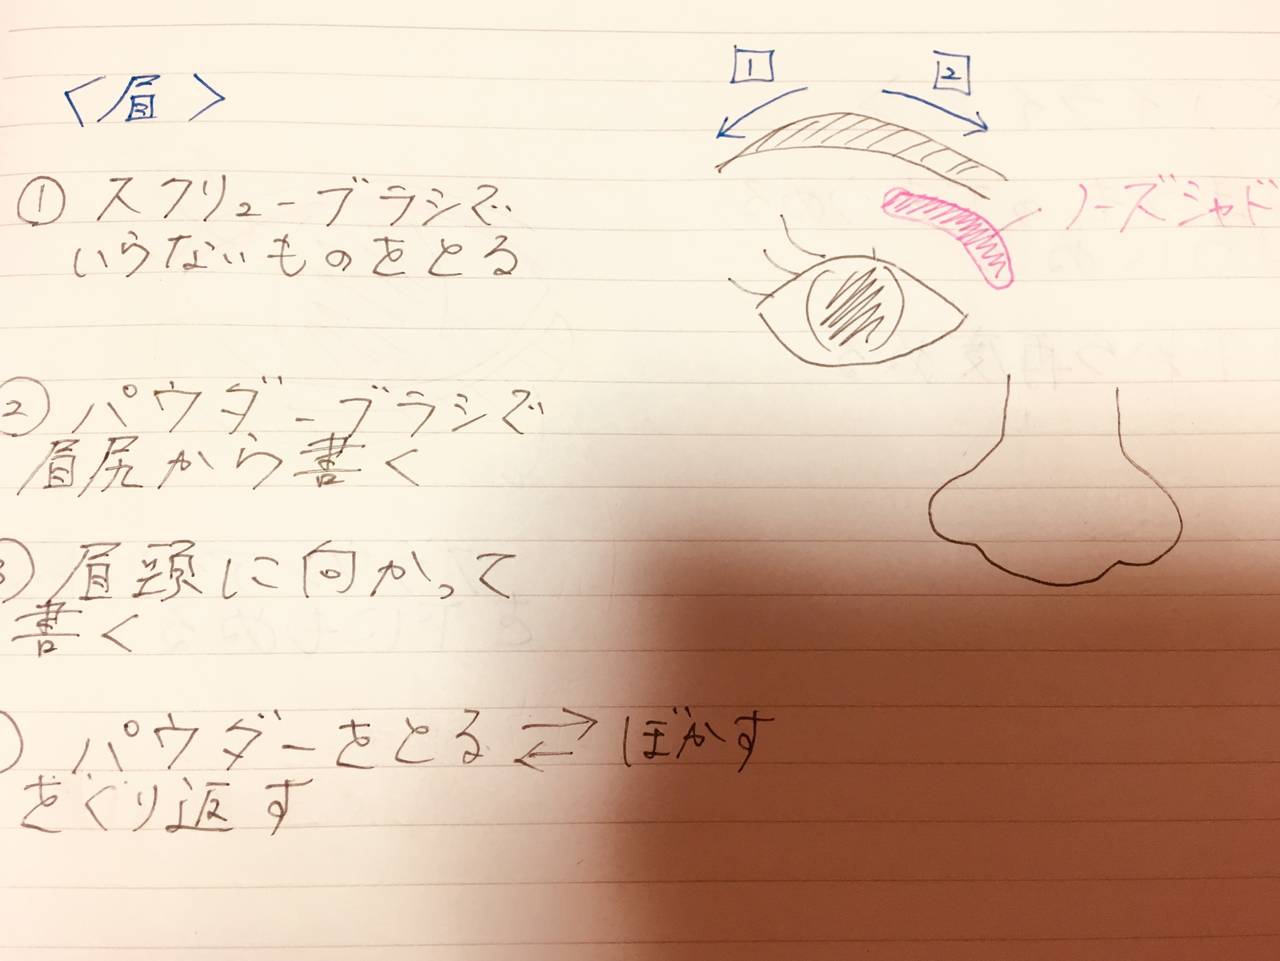 〈眉〉
1
2
① スクリューブラシで
いらないものをとる
ノーズシャド
② パウダーブラシで
眉尻から書く
眉頭に向かって
書く
パウダーをとる ⇄ ぼかす
をくり返す